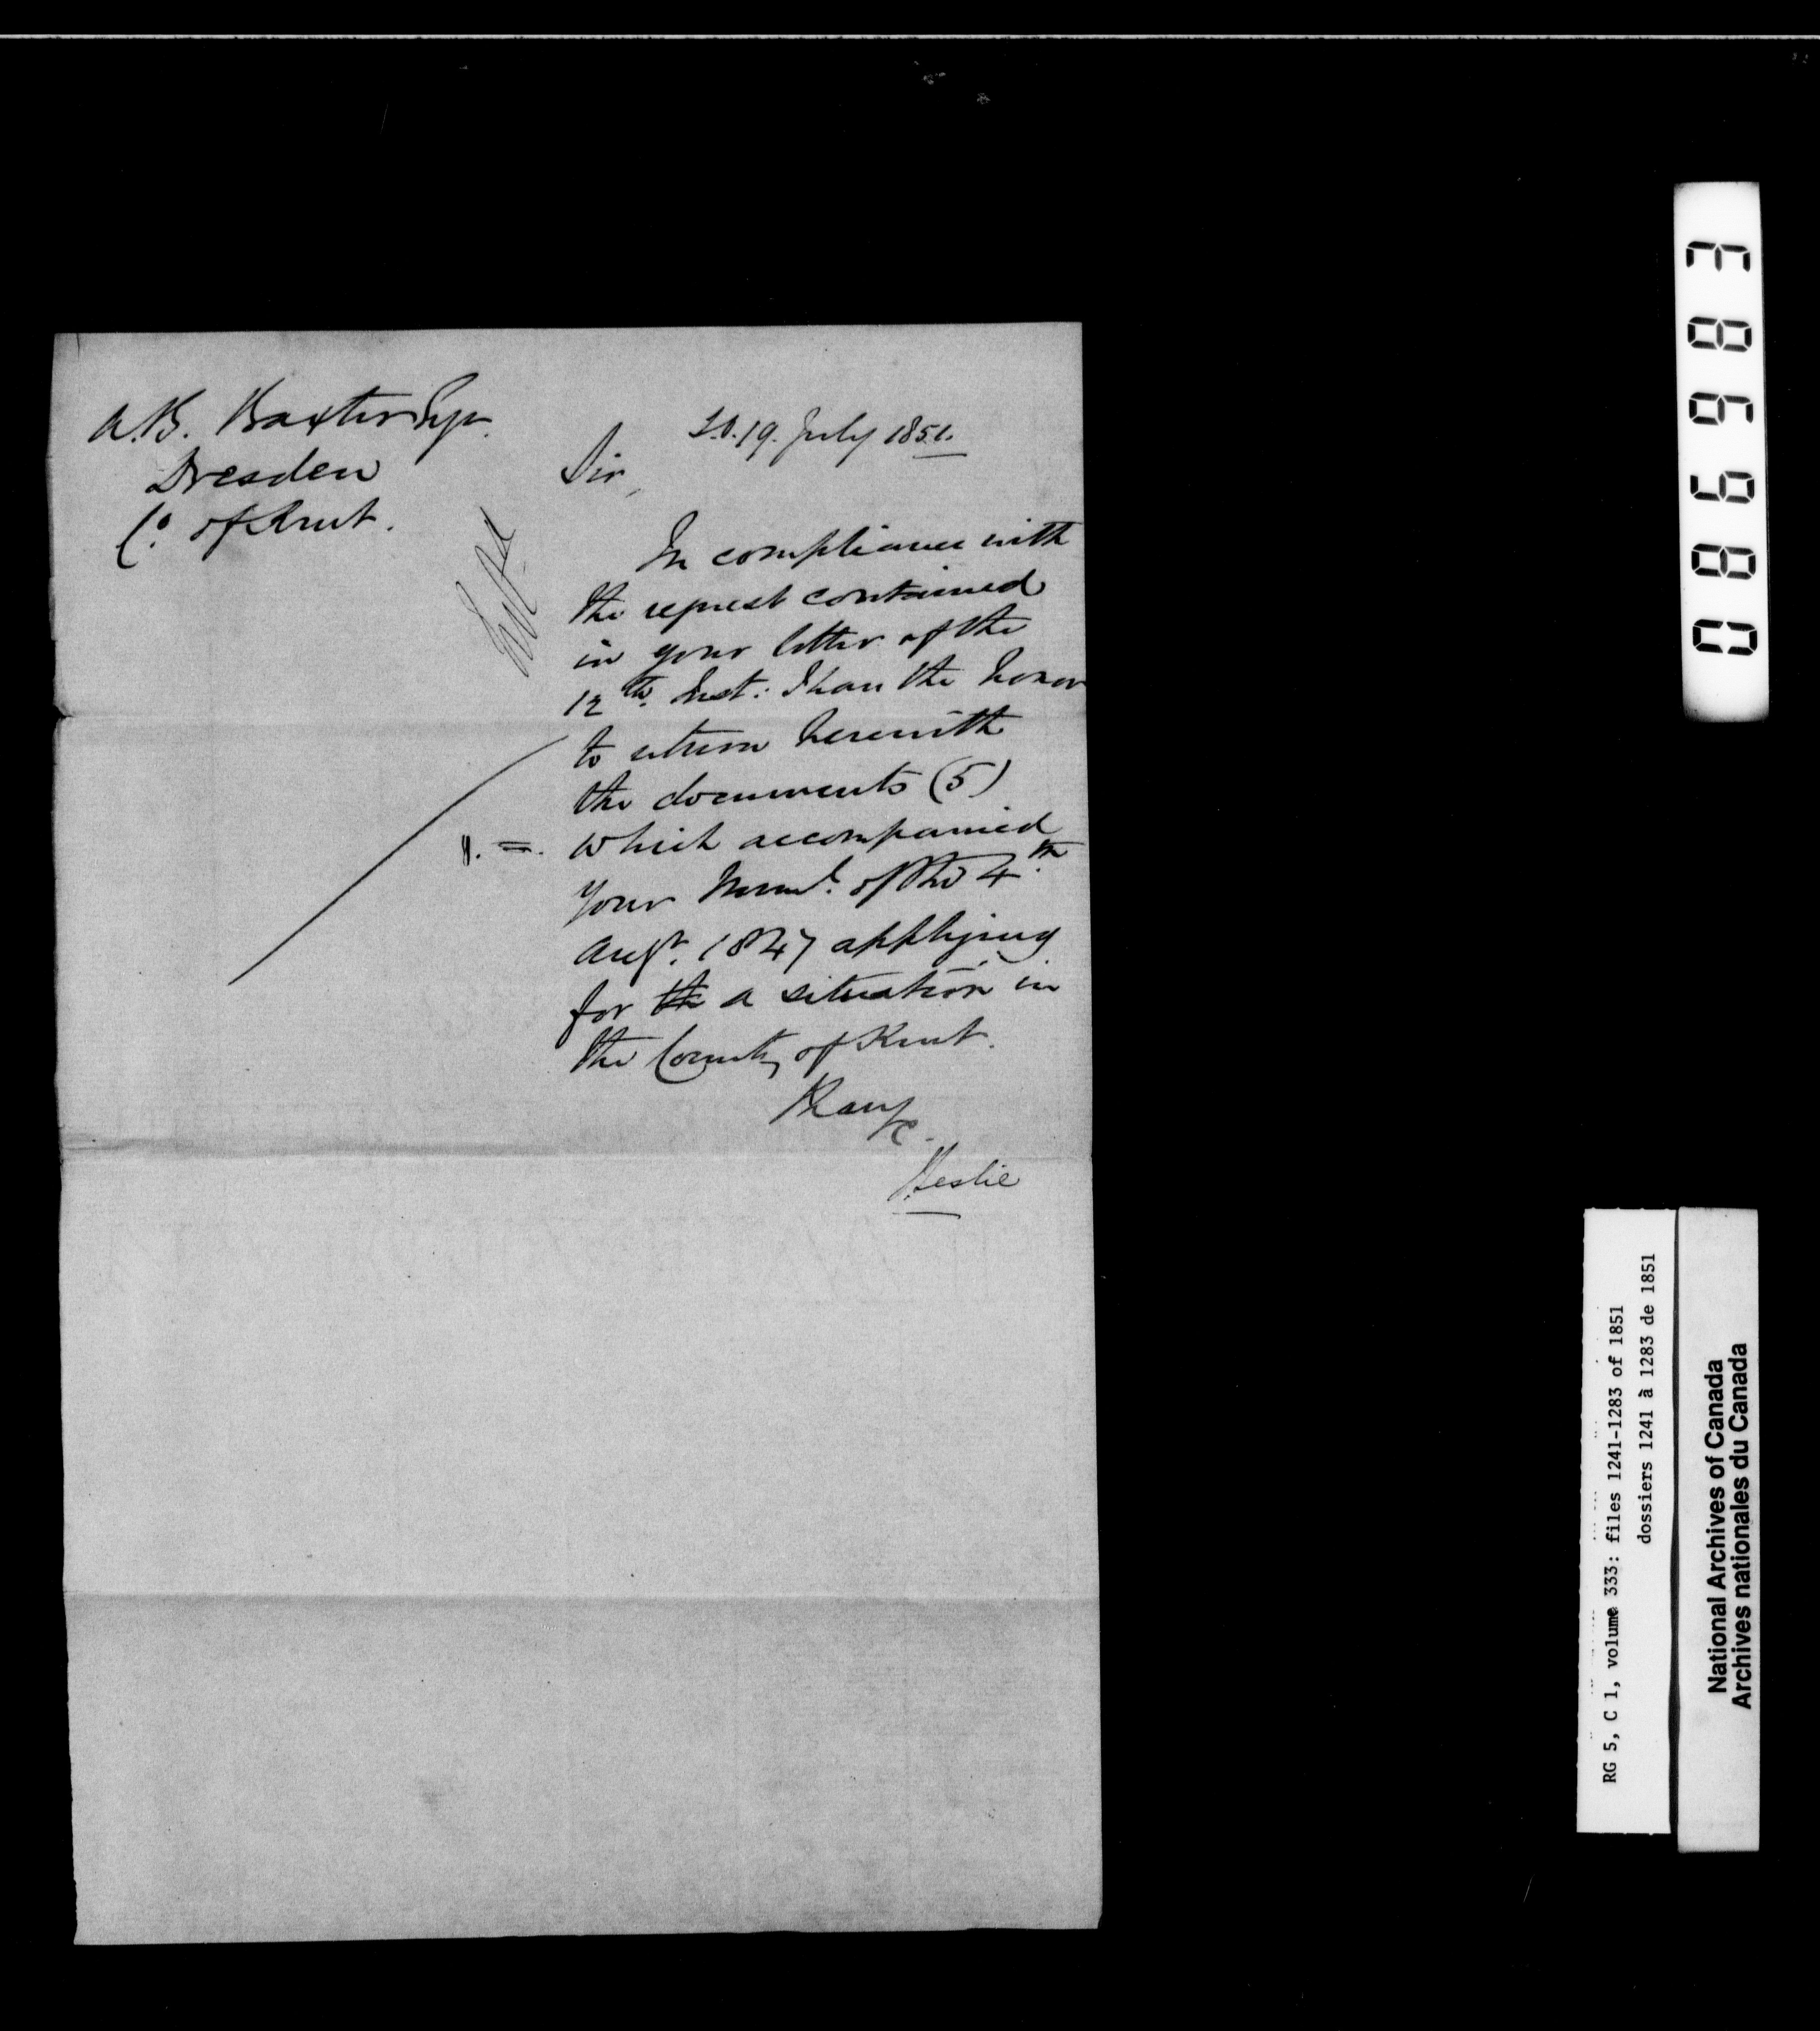 A.B. Baxter Esqr.
Dresden
Co. of Kent.
S.O. 19. July 1851.
Sir,
In compliance with
the request contained
in your letter of the
12th. Inst: I have the honor
to return herewith
the documents (5)
which accompanied
your Meml. of the 4th
Augt. 1847 applying
for th a situation in
the County of Kent.
I have &c.
J. Leslie
086983
RG 5, C 1, volume 333: files 1241-1283 of 1851
dossiers 1241 à 1283 de 1851
National Archives of Canada
Archives nationales du Canada